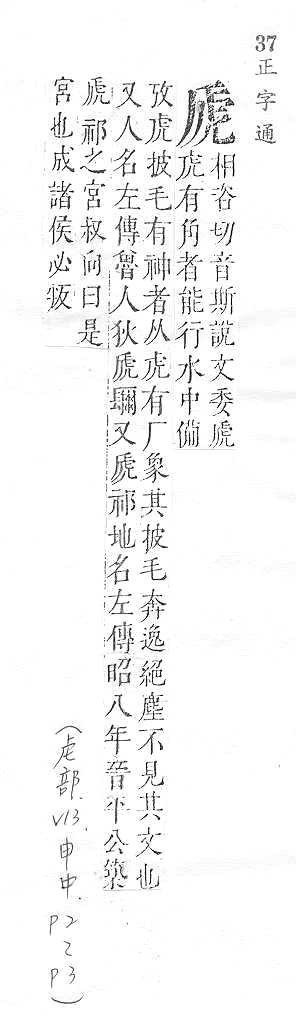 37 正字通
虒 相咨切音斯說文委虒
虎有角者能行水中備
攷虎披毛有神者从虎有厂象其披毛奔逸絕塵不見其文也
又人名左傳魯人狄虒瓕又虒祁地名左傳昭八年晉平公築
虒祁之宮叔向曰是
宮也成諸侯必叛
(虍部. V13. 申中. P2 P3)